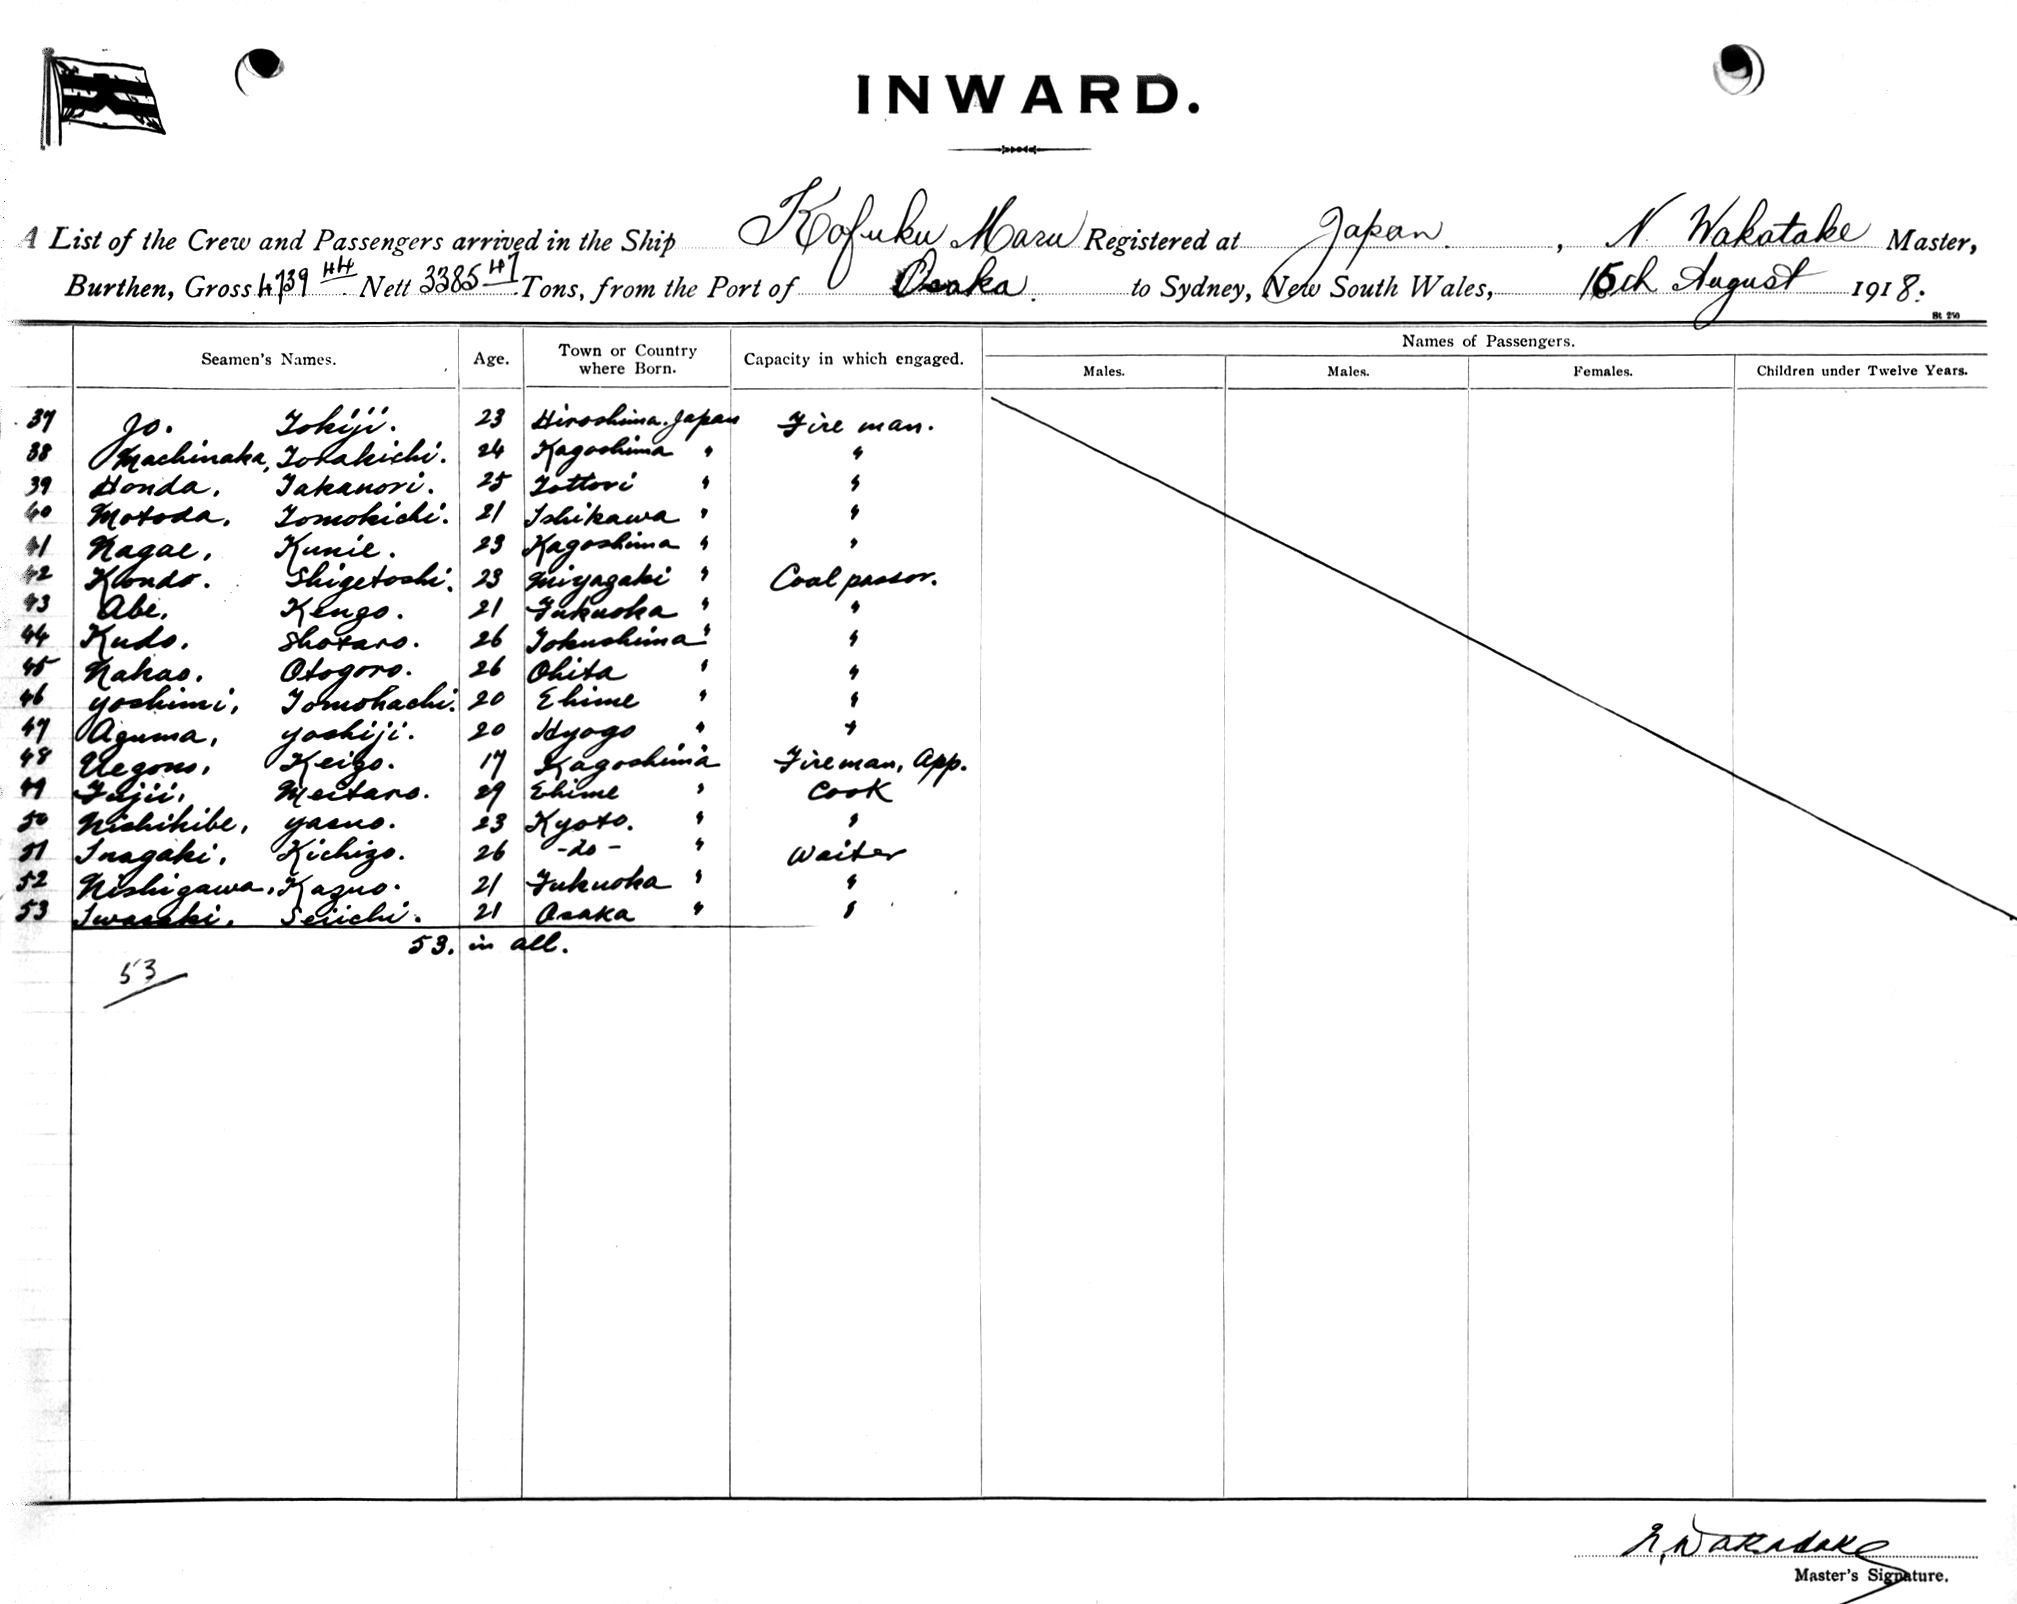 INWARD.
A List of the Crew and Passengers arrived in the Ship Kofuku Maru Registered at Japan. , N. Wakatake Master,
Burthen, Gross 4739 44 Nett 3385 47 Tons, from the Port of Osaka. to Sydney, New South Wales, 15th August 1918.
St 250
Names of Passengers.
Seamen's Names. Age. Town or Country where Born. Capacity in which engaged. Males. Males. Females. Children under Twelve Years.
37 Jo. Tokiji. 23 Hiroshima. Japan Fire man.
38 Machinaka, Torakichi. 24 Kagoshima " "
39 Honda, Takanori. 25 Tottori " "
40 Motoda, Tomokichi. 21 Ishikawa " "
41 Nagae, Kunie. 23 Kagoshima " "
42 Kondo. Shigetoshi. 23 Miyagaki " Coal passor.
43 Abe, Kengo. 21 Fukuoka " "
44 Kudo, Shotaro. 26 Tokushima " "
45 Nakao, Otogoro. 26 Ohita " "
46 Yoshimi, Tomohachi. 20 Ehime " "
47 Azuma, Yoshiji. 20 Hyogo " "
48 Uegono, Keigo. 17 Kagoshima " Fireman, App.
49 Fujii, Meitaro. 29 Ehime " Cook
50 Nishikibe, Yasuo. 23 Kyoto. " "
51 Inagaki, Kichizo. 26 -do- " Waiter
52 Nishigawa, Kazuo. 21 Fukuoka " "
53 Iwasaki, Seiichi. 21 Osaka " "
53. in all.
53
N. Wakatake
Master's Signature.